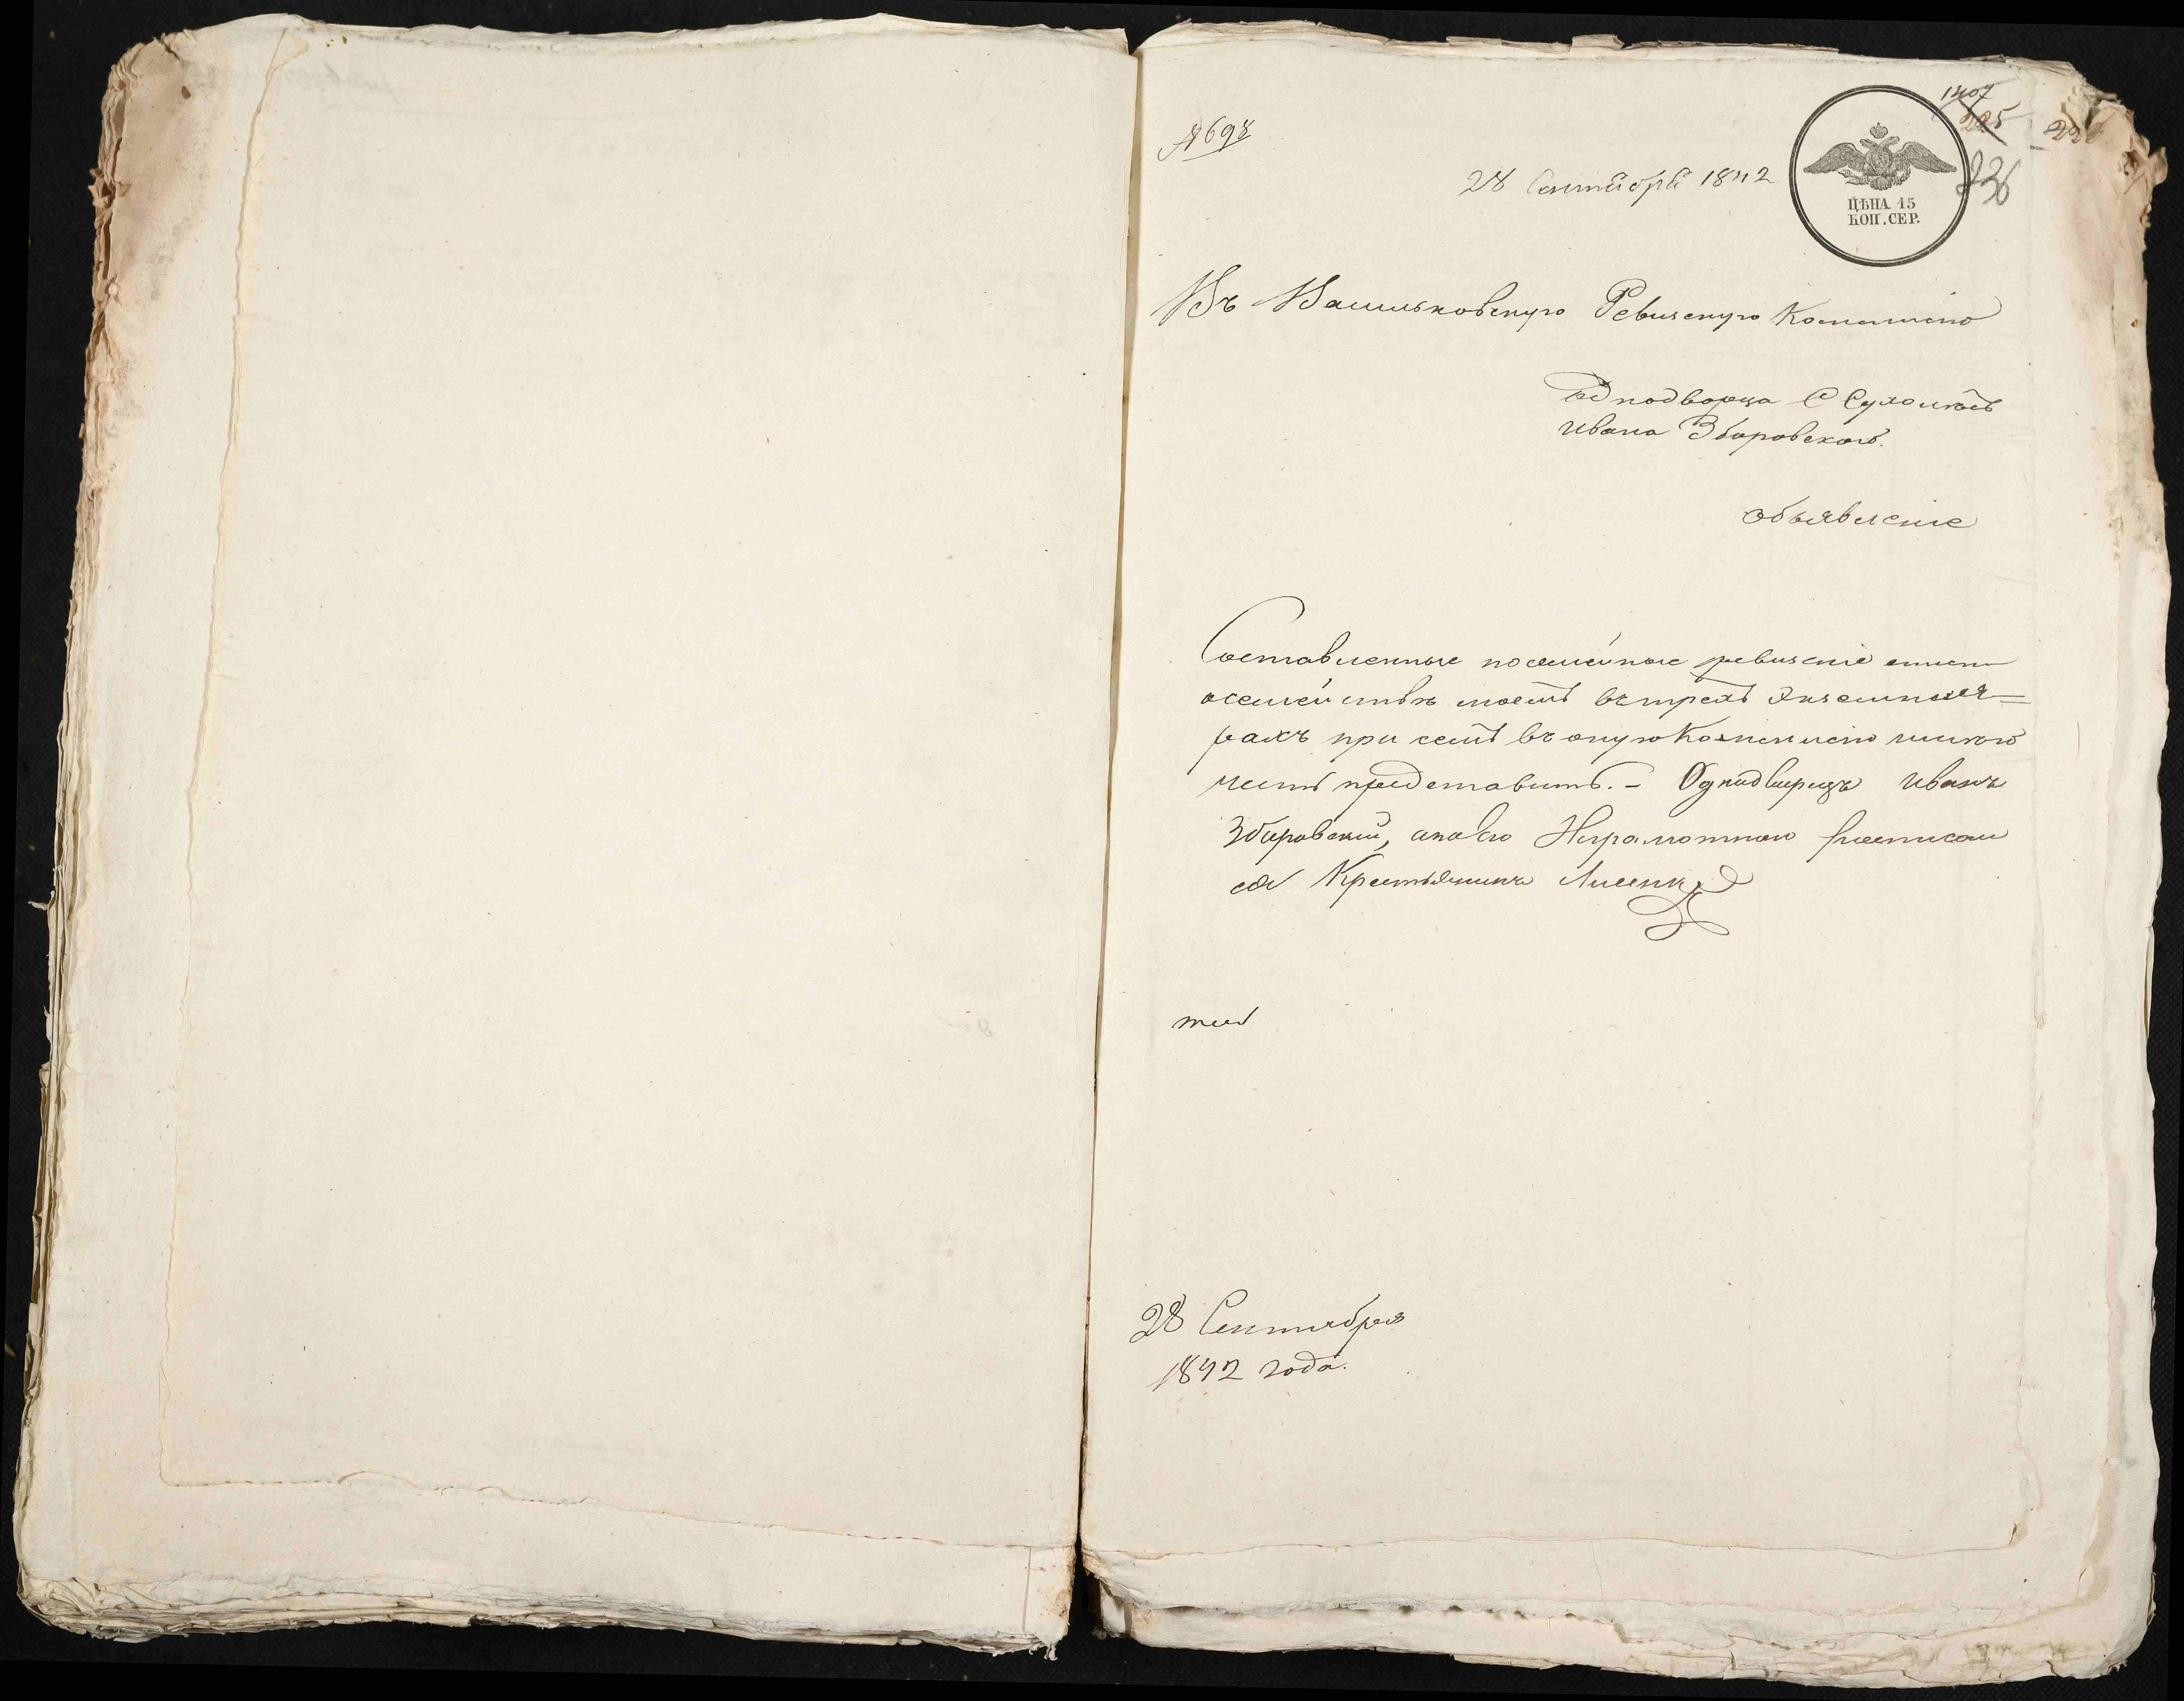 1407
225
226
№ 698
28 Сентября 1842
236
ЦѢНА 15
КОП. СЕР.
Въ Васильковскую Ревизскую Коммисію
Однодворца С Сухолѣсъ
Ивана Збаровскаго.
объявленіе
Составленные посемейные ревизскіе
осемействѣ моемъ въ трехъ Экземпля=
рахъ при семъ въ оную Коммисію имѣю
честь представить. – Однодворецъ Иванъ
Збаровскій, а
ся Крестьянинъ
28 Сентября
1842 года.